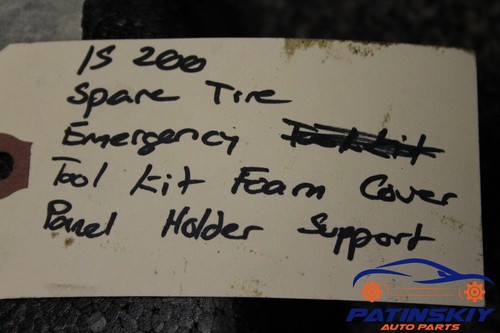 IS 200
Spare Tire
Emergency Tool Kit
Tool Kit Foam Cover
Panel Holder Support
PATINSKIY
AUTO PARTS